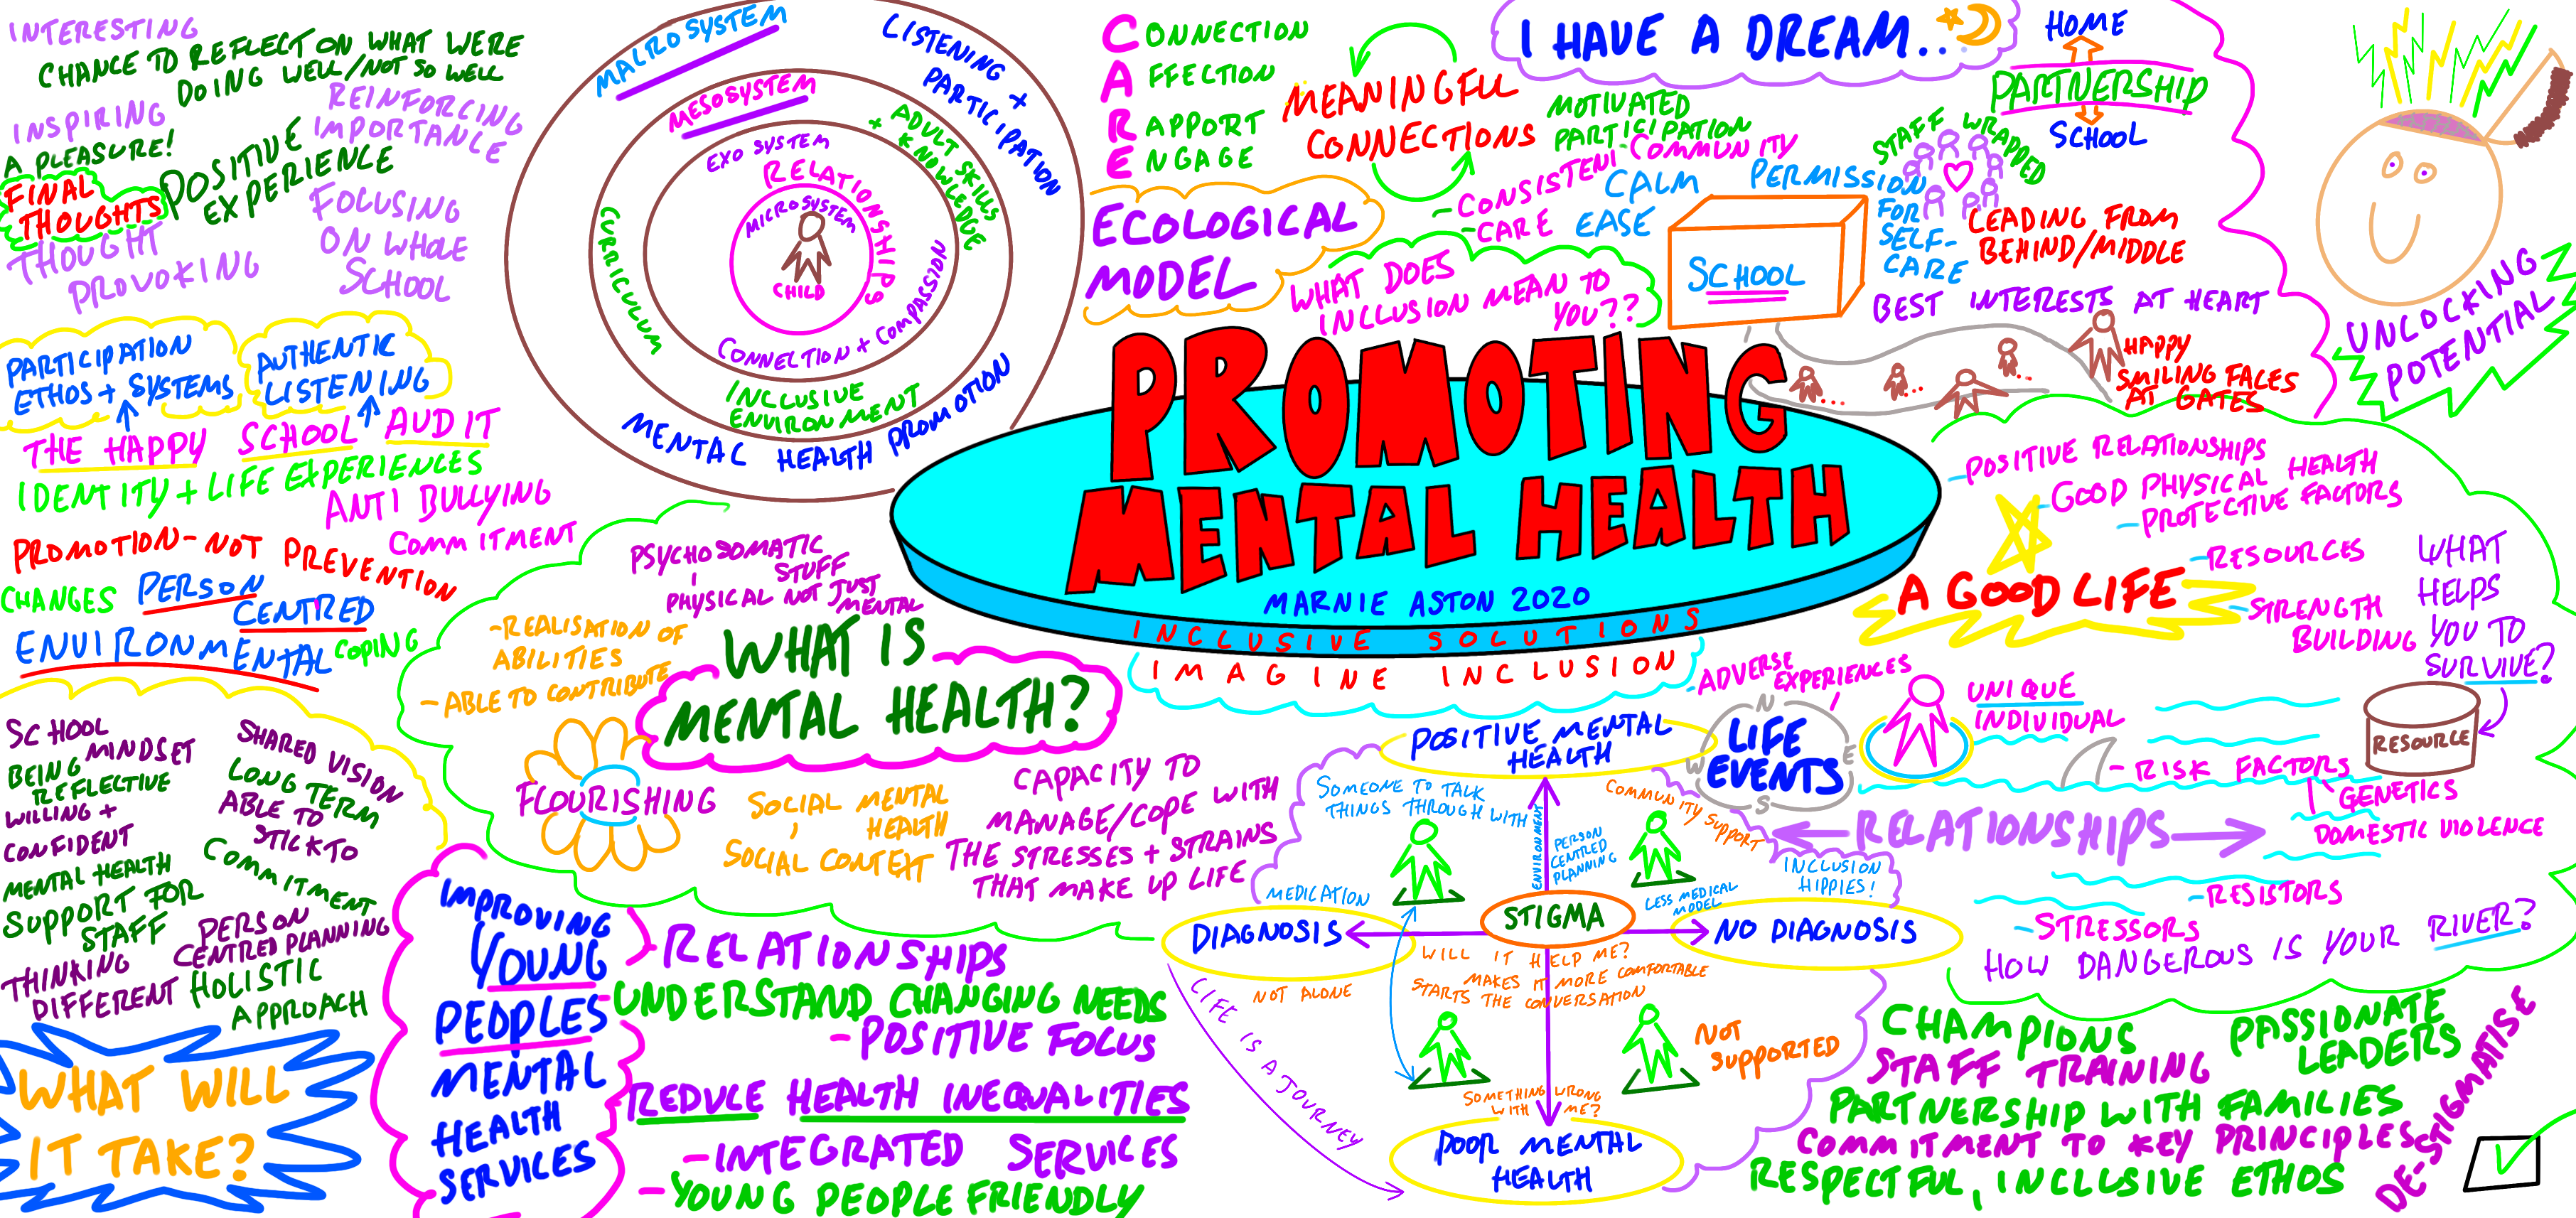 INTERESTING
CHANCE TO REFLECT ON WHAT WERE
DOING WELL/NOT SO WELL
INSPIRING
REINFORCING
IMPORTANCE
A PLEASURE!
POSITIVE
EXPERIENCE
FINAL
THOUGHTS
FOCUSING
ON WHOLE
SCHOOL
THOUGHT
PROVOKING
PARTICIPATION
ETHOS + SYSTEMS
AUTHENTIC
LISTENING
THE HAPPY SCHOOL AUDIT
IDENTITY + LIFE EXPERIENCES
ANTI BULLYING
COMMITMENT
PROMOTION - NOT PREVENTION
CHANGES
PERSON
CENTRED
ENVIRONMENTAL
COPING
SCHOOL
MINDSET
BEING
REFLECTIVE
WILLING +
CONFIDENT
MENTAL HEALTH
SUPPORT FOR
STAFF
THINKING
DIFFERENT
SHARED VISION
LONG TERM
ABLE TO
STICK TO
COMMITMENT
PERSON
CENTRED PLANNING
HOLISTIC
APPROACH
WHAT WILL
IT TAKE?
MALROSYSTEM
LISTENING +
PARTICIPATION
MESOSYSTEM
ADULT SKILLS
+ KNOWLEDGE
EXO SYSTEM
RELATIONSHIPS
MICROSYSTEM
CHILD
CURRICULUM
CONNECTION + COMPASSION
INCLUSIVE
ENVIRONMENT
MENTAL HEALTH PROMOTION
CONNECTION
AFFECTION
RAPPORT
ENGAGE
MEANINGFUL
CONNECTIONS
ECOLOGICAL
MODEL
I HAVE A DREAM...
MOTIVATED
PARTICIPATION
- COMMUNITY
- CONSISTENT
- CARE
CALM
EASE
PERMISSION
FOR
SELF-
CARE
WHAT DOES
INCLUSION MEAN TO
YOU??
SCHOOL
HOME
PARTNERSHIP
SCHOOL
STAFF WRAPPED
LEADING FROM
BEHIND/MIDDLE
BEST INTERESTS AT HEART
HAPPY
SMILING FACES
AT GATES
UNLOCKING
POTENTIAL
PROMOTING
MENTAL HEALTH
MARNIE ASTON 2020
INCLUSIVE SOLUTIONS
IMAGINE INCLUSION
PSYCHOSOMATIC
STUFF
PHYSICAL NOT JUST
MENTAL
- REALISATION OF
ABILITIES
- ABLE TO CONTRIBUTE
WHAT IS
MENTAL HEALTH?
FLOURISHING
SOCIAL MENTAL
HEALTH
SOCIAL CONTEXT
CAPACITY TO
MANAGE/COPE WITH
THE STRESSES + STRAINS
THAT MAKE UP LIFE
IMPROVING
YOUNG
PEOPLES
MENTAL
HEALTH
SERVICES
RELATIONSHIPS
- UNDERSTAND CHANGING NEEDS
- POSITIVE FOCUS
REDUCE HEALTH INEQUALITIES
- INTEGRATED SERVICES
- YOUNG PEOPLE FRIENDLY
POSITIVE MENTAL
HEALTH
SOMEONE TO TALK
THINGS THROUGH WITH
ENVIRONMENT
PERSON
CENTRED
PLANNING
COMMUNITY SUPPORT
INCLUSION
HIPPIES!
MEDICATION
LESS MEDICAL
MODEL
DIAGNOSIS
STIGMA
NO DIAGNOSIS
WILL IT HELP ME?
MAKES IT MORE COMFORTABLE
STARTS THE CONVERSATION
NOT ALONE
NOT
SUPPORTED
SOMETHING WRONG
WITH ME?
POOR MENTAL
HEALTH
LIFE IS A JOURNEY
- POSITIVE RELATIONSHIPS
- GOOD PHYSICAL HEALTH
- PROTECTIVE FACTORS
- RESOURCES
A GOOD LIFE
- STRENGTH
BUILDING
WHAT
HELPS
YOU TO
SURVIVE?
- ADVERSE
EXPERIENCES
N
E
S
W
LIFE
EVENTS
UNIQUE
INDIVIDUAL
RESOURCE
- RISK FACTORS
GENETICS
DOMESTIC VIOLENCE
RELATIONSHIPS
- RESISTORS
- STRESSORS
HOW DANGEROUS IS YOUR RIVER?
CHAMPIONS
PASSIONATE
LEADERS
STAFF TRAINING
PARTNERSHIP WITH FAMILIES
COMMITMENT TO KEY PRINCIPLES
RESPECTFUL, INCLUSIVE ETHOS
DE-STIGMATISE